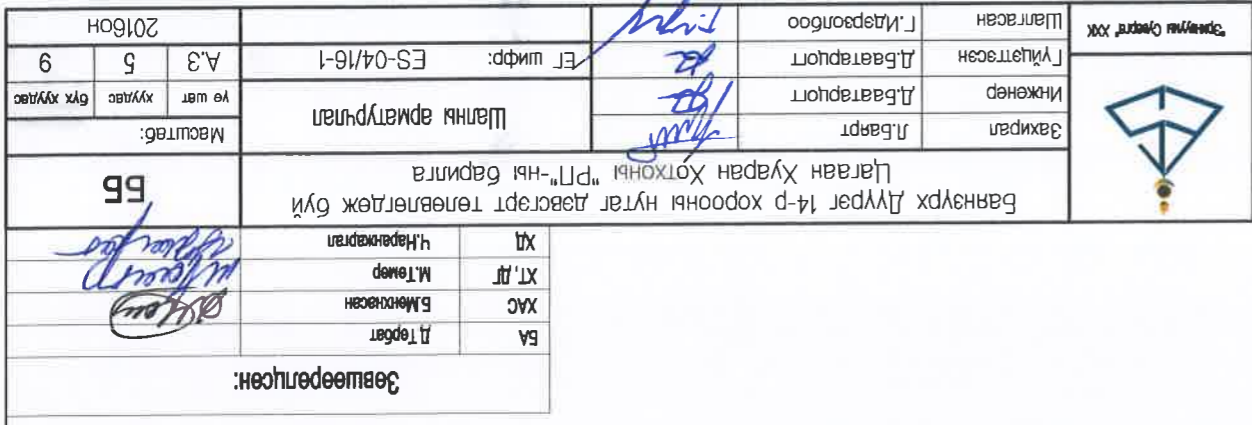 Зөвшөөрөлцсөн:
БА Д.Төрбат
ХАС Б.Мөнхнасан
ХТ, ДГ М.Төмөр
ХД Ч.Наранжаргал
Баянзүрх Дүүрэг 14-р хорооны нутаг дэвсгэрт төлөвлөгдөж буй
Цагаан Хуаран Хотхоны "РП"-ны барилга
ББ
Захирал Л.Баярт
Инженер Д.Баатарцогт
Гүйцэтгэсэн Д.Баатарцогт
Шалгасан Г.Идэрзолбоо
Шалны арматурчлал
ЕГ шифр: ES-04/16-1
Масштаб:
үе шат хуудас бүх хуудас
А.3 5 9
2016он
ХХК